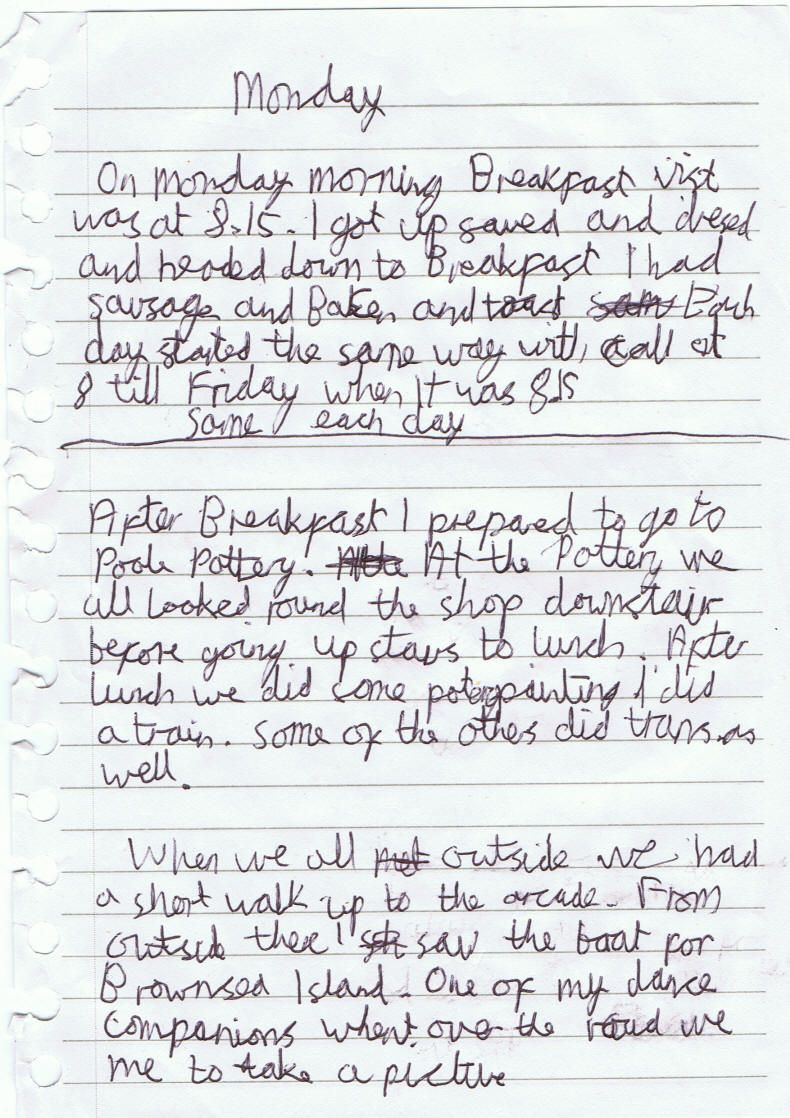 Monday
On monday morning Breakfast vist
was at 8.15. I got up saved and dresed
and headed down to Breakfast I had
sausage and Baken and toast Each
day started the same way with call at
8 till Friday when it was 8.15
same each day
After Breakfast I prepared to go to
Poole Pottery. At the Pottery we
all looked round the shop downstair
before going up stairs to lunch. After
lunch we did some poterypainting I did
a train. Some of the othes did trans as
well.
When we all met outside we had
a short walk up to the arcade. From
outside there I saw the boat for
Brownsea Island. One of my dance
companions whent over the road we
me to take a picture